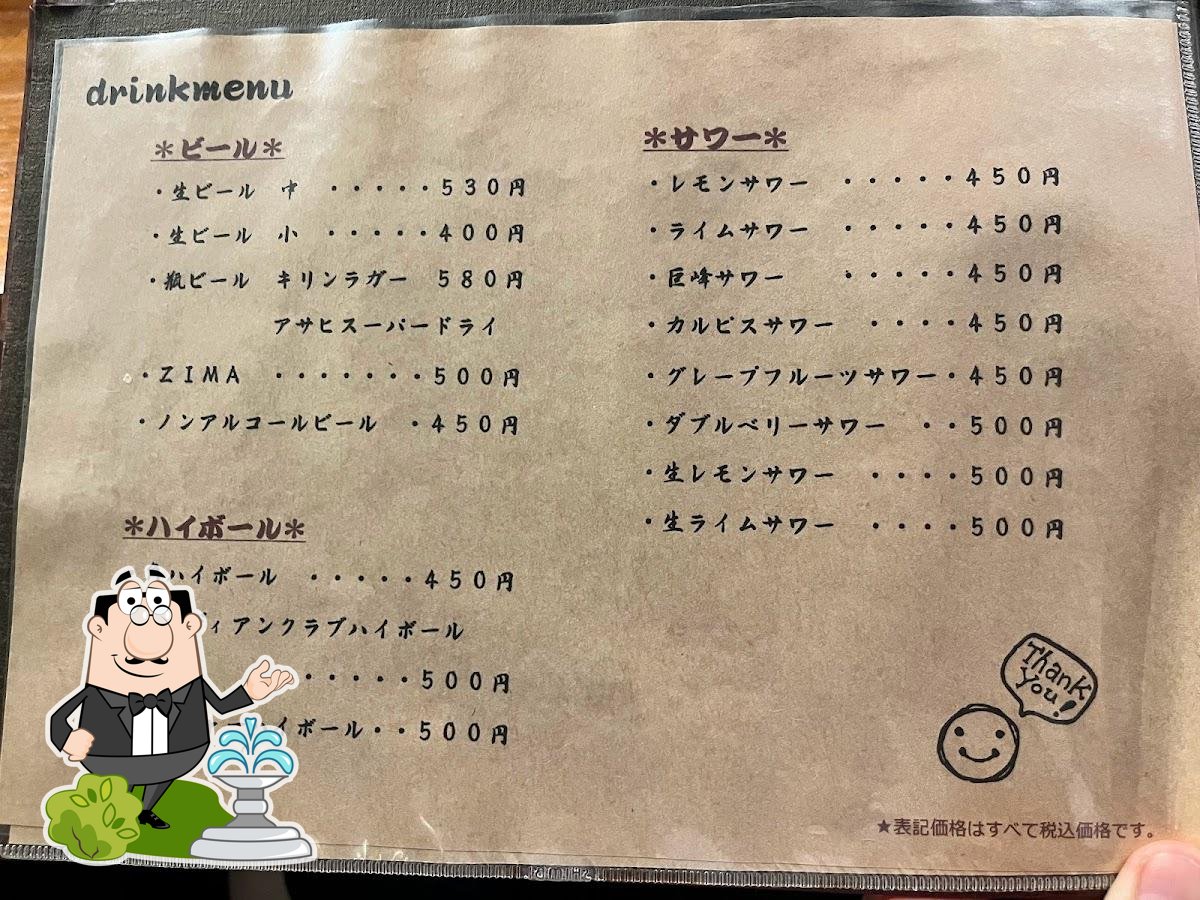 drinkmenu
＊ビール＊
・生ビール 中 ・・・・・530円
・生ビール 小 ・・・・・400円
・瓶ビール キリンラガー 580円
アサヒスーパードライ
・ZIMA ・・・・・・・500円
・ノンアルコールビール ・450円
＊ハイボール＊
ハイボール ・・・・・450円
ィアンクラブハイボール
・・・・・500円
イボール・・500円
＊サワー＊
・レモンサワー ・・・・・450円
・ライムサワー ・・・・・450円
・巨峰サワー ・・・・・450円
・カルピスサワー ・・・・450円
・グレープフルーツサワー・450円
・ダブルベリーサワー ・・500円
・生レモンサワー ・・・・500円
・生ライムサワー ・・・・500円
Thank
You!
★表記価格はすべて税込価格です。